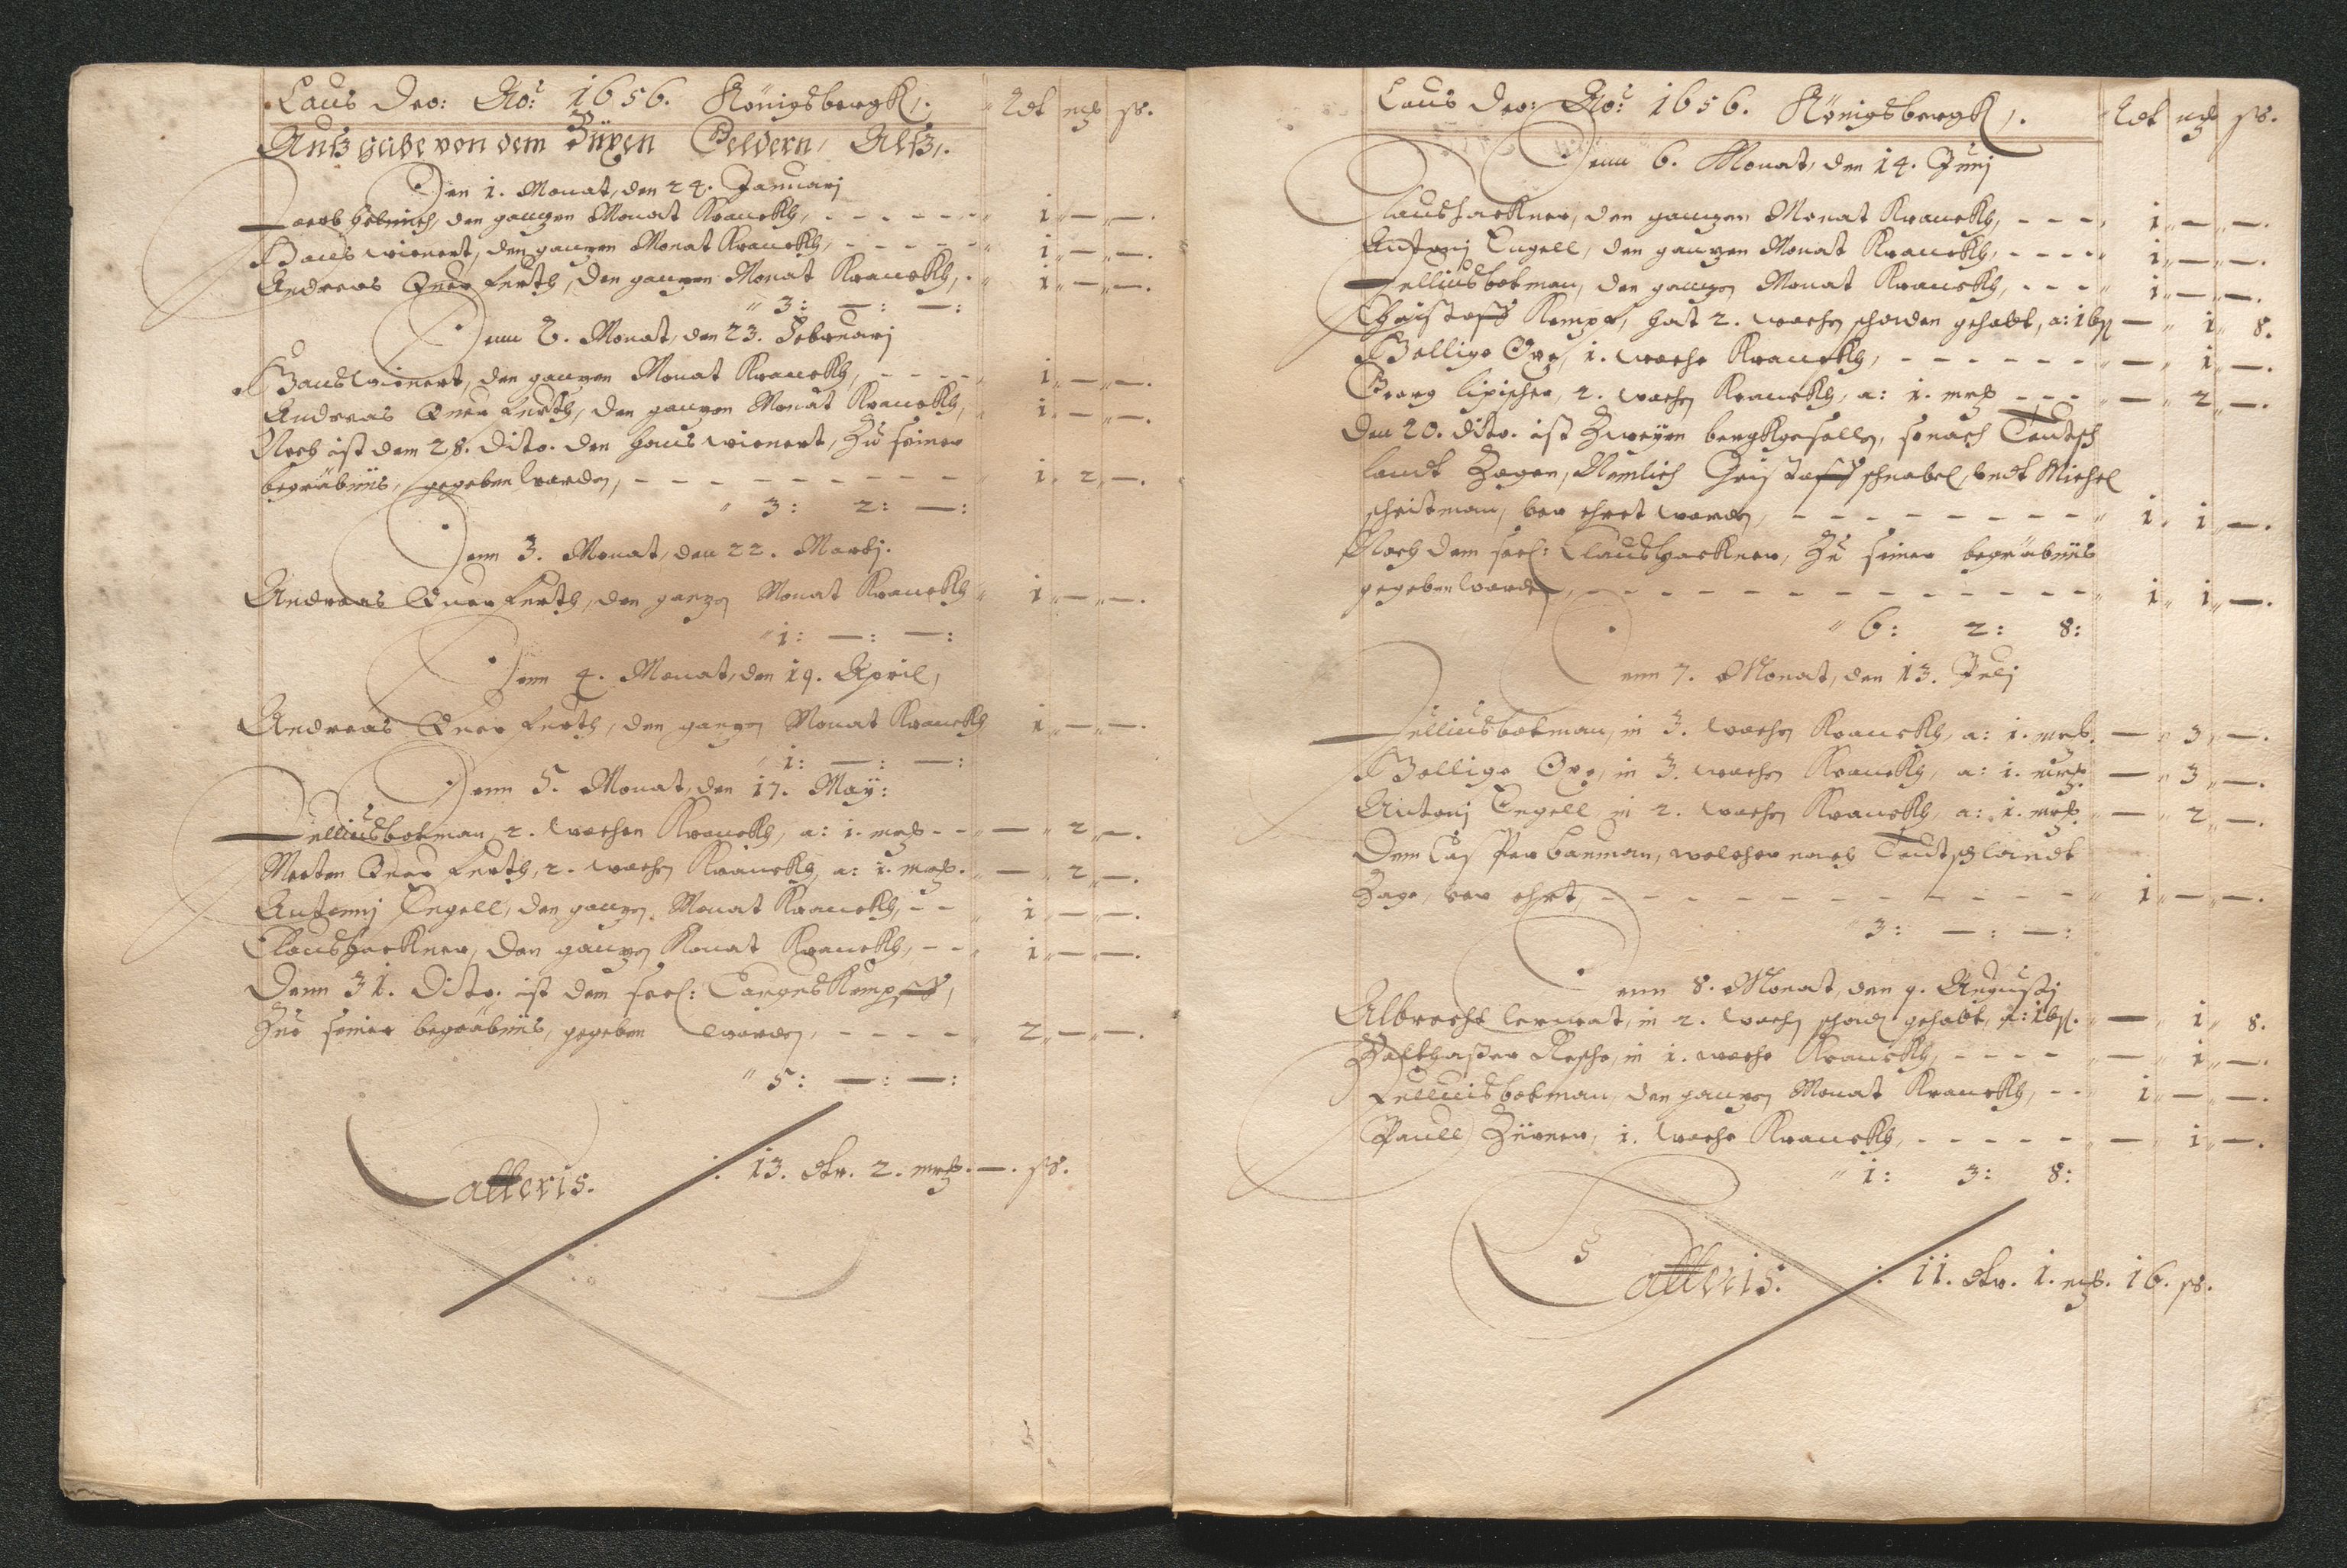 Laus Deo: Ao: 1656. Königsbergk,. Rdt mrk ß.
Ausz gabe von dem Büxen Geldern, Alsz,.
Den 1. Monat, den 24. Januarj
Jacob Hebrich, den ganzen Monat Kranckh, - - - - - - 1 — —.
Hans wienert, den ganzen Monat Kranckh, - - - - - 1 — —.
Andreas Quer furth, den ganzen Monat Kranckh, . 1 — —.
3: —: —:
Denn 2. Monat, den 23. Februarj
Hans wienert, den ganzen Monat Kranckh, - - - - 1 — —.
Andreas Quer furth, den ganzen Monat Kranckh, 1 — —.
Noch ist dem 28. Dito. den Hans wienert, Zu seiner
begräbnüs, gegeben worden, - - - - - - - - - 1. 2 —.
3: 2: —:
Denn 3. Monat, den 22. Martj.
Andreas Quer furth, den ganzen Monat Kranckh 1 — —.
1: —: —:
Denn 4. Monat, den 19. April,
Andreas Quer furth, den ganzen Monat Kranckh 1 — —.
1: —: —:
Denn 5. Monat, den 17. May:
Jellius botman, 2. wochen Kranckh, a: 1. mrk - - — 2 —.
Merten Quer furth, 2. wochen Kranckh, a: 1. mrk. — 2 —.
Antonnj Engell, den ganzen Monat Kranckh, - - 1 — —.
Claus Hackner, den ganzen Monat Kranckh, - - 1 — —.
Denn 31. Dito. ist dem seel: Kempff,
Zue seiner begräbnüs, gegeben worden, - - - - 2 — —.
5: —: —:
Latteris. : 13. dlr. 2. mrk. —. ß.
Laus Deo: Ao: 1656. Königsbergk,. Rdt mrk ß.
Denn 6. Monat, den 14. Junj
Claus Hackner, den ganzen Monat Kranckh, - - - 1 — —.
Antonj Engell, den ganzen Monat Kranckh, - - - - 1 — —.
Jellius botman, den ganzen Monat Kranckh, - - - 1 — —.
Christoff Kempe, hat 2. wochen schaden gehabt, a: 16ß — 1 8.
Bollige Ove, 1. woche Kranckh, - - - - - - — 1 —.
Georg lipicher, 2. wochen Kranckh, a: 1. mrk - - - — 2 —.
Den 20. dito. ist Zweyen bergkgesellen, so nach Teutsch
landt Zogen, Nemlich Christoff schnabel, undt Michel
scheitman, ver ehret worden, - - - - - - - - 1. 1 —.
Noch dem seel: Claus Hackner, Zu seiner begräbnüs
gegeben worden, - - - - - - - - - - - - - 1 1 —.
6: 2: 8:
Denn 7. Monat, den 13. Julj
Jellius botman, in 3. wochen Kranckh, a: 1. mrk. — 3 —.
Bollige Ove, in 3. wochen Kranckh, a: 1. mrk. — 3 —.
Antonj Engell, in 2. wochen Kranckh, a: 1. mrk. — 2 —.
Dem Cas Per bauman, welcher nach Teutschlandt
Zoge, ver ehrt, - - - - - - - - - - - - 1 — —.
3: —: —:
Denn 8. Monat, den 9. Augustj
Albrecht lernrat, in 2. wochen schad gehabt, a: 16ß. — 1 8.
Balthaser Resche, in 1. woche Kranckh, - - - - — 1 —.
Jellius botman, den ganzen Monat Kranckh, - - 1 — —.
Paull Zürner, 1. woche Kranckh, - - - - - — 1 —.
1: 3: 8:
Latteris. : 11. dlr. 1. mrk. 16. ß.